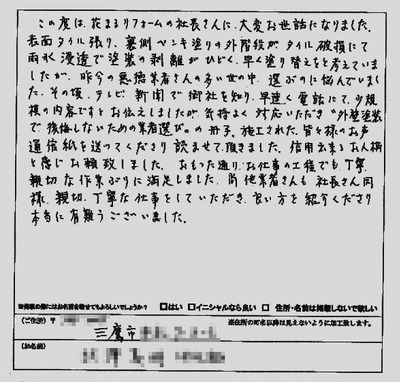 この度は、花まるリフォームの社長さんに、大変お世話になりました。
表面タイル張り、裏側ペンキ塗りの外階段がタイル破損にて
雨水浸透で塗装の剥離がひどく、早く塗り替えをと考えていま
したが、昨今の悪徳業者さんの多い世の中、選ぶのに悩んでいまし
た。その頃、テレビ、新聞で御社を知り、早速、電話にて、少規
模の内容ですとお伝えしましたが、気持よく対応いただき“外壁塗装
で後悔しないための業者選び”の冊子、施工された、皆々様のお声
通信紙を送ってくださり読ませて頂きました。信用出来るお人柄
と感じお願い致しました。おもった通り、お仕事の工程でも、丁寧
親切な作業ぶりに満足しました。他業者さんも社長さん同
様、親切、丁寧な仕事をしていただき、良い方を紹介くださり
本当に有難うございました。
※掲載の際にはお名前を載せてもよろしいでしょうか？ □はい □イニシャルなら良い □ 住所・名前は掲載しないで欲しい
（ご住所）〒 ※住所の町名以降は見えないように加工致します。
三鷹市
（お名前）